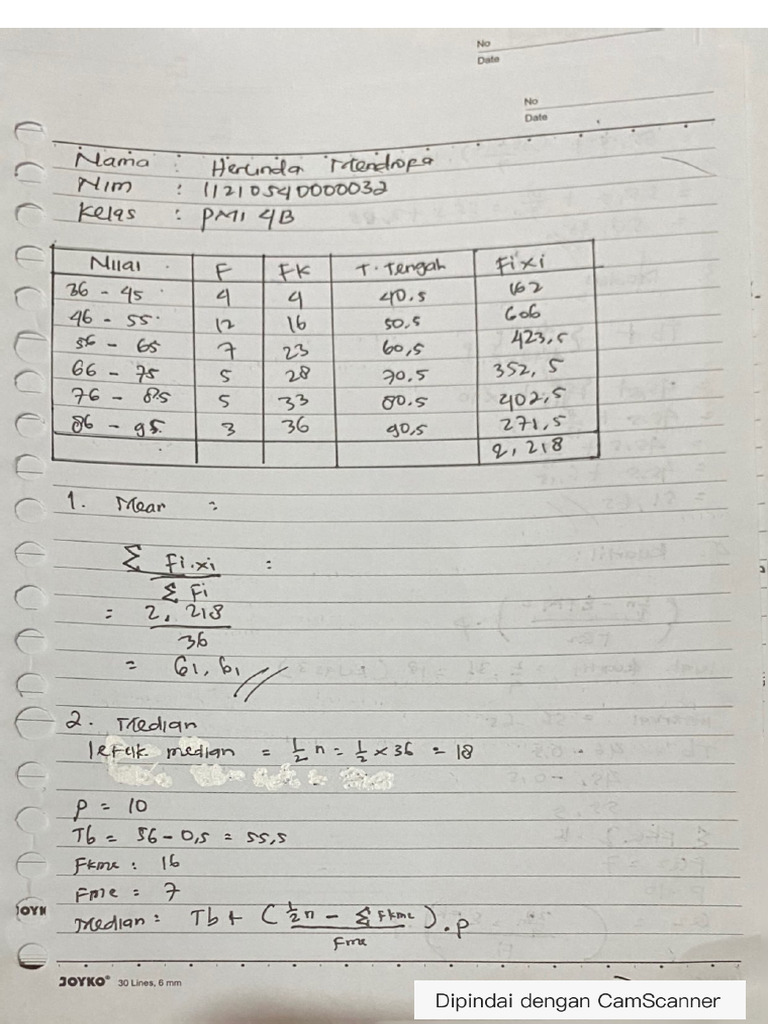 No
Date
No
Date
Nama : Herlinda Mendropa
Nim : 11210540000032
Kelas : PMI 4B
Nilai F FK T. Tengah Fixi
36 - 45 4 4 40.5 162
46 - 55 12 16 50.5 606
56 - 65 7 23 60,5 423,5
66 - 75 5 28 70.5 352,5
76 - 85 5 33 80.5 402,5
86 - 95 3 36 90,5 271,5
2,218
1. Mean :
Σ Fi.xi :
Σ Fi
= 2,218
36
= 61,61
2. Median
letak median = 1/2 n = 1/2 x 36 = 18
P = 10
Tb = 56 - 0,5 = 55,5
Fkme : 16
Fme = 7
Median : Tb + (1/2n - Σ Fkme) . p
Fme
JOYKO® 30 Lines, 6 mm
Dipindai dengan CamScanner